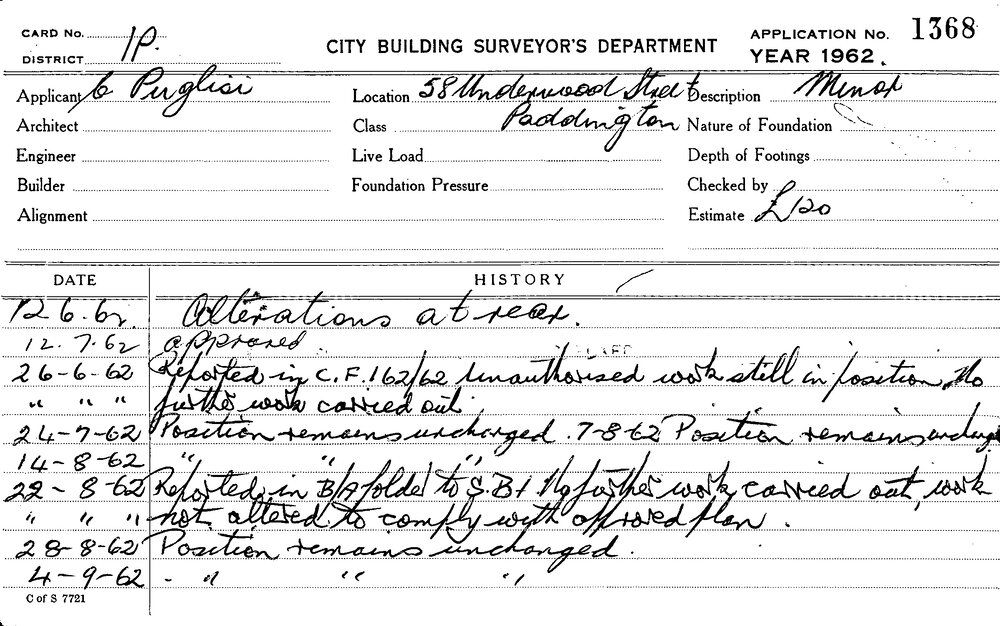 CARD No.
DISTRICT 1P.
CITY BUILDING SURVEYOR'S DEPARTMENT
APPLICATION No. 1368
YEAR 1962.
Applicant C Puglisi Location 58 Underwood Street Description Minor
Architect Class Paddington Nature of Foundation
Engineer Live Load Depth of Footings
Builder Foundation Pressure Checked by
Alignment Estimate £120
DATE HISTORY
12.6.62. Alterations at rear.
12.7.62 approved.
26-6-62 Reported in C.F. 162/62 Unauthorised work still in position, No
" " " further work carried out.
24-7-62 Position remains unchanged. 7-8-62 Position remains unchanged
14-8-62 " " "
22-8-62 Reported in B/A folder to S.B.I No further work carried out, work
" " " not altered to comply with approved plan.
28-8-62 Position remains unchanged.
4-9-62 - " " "
C of S 7721